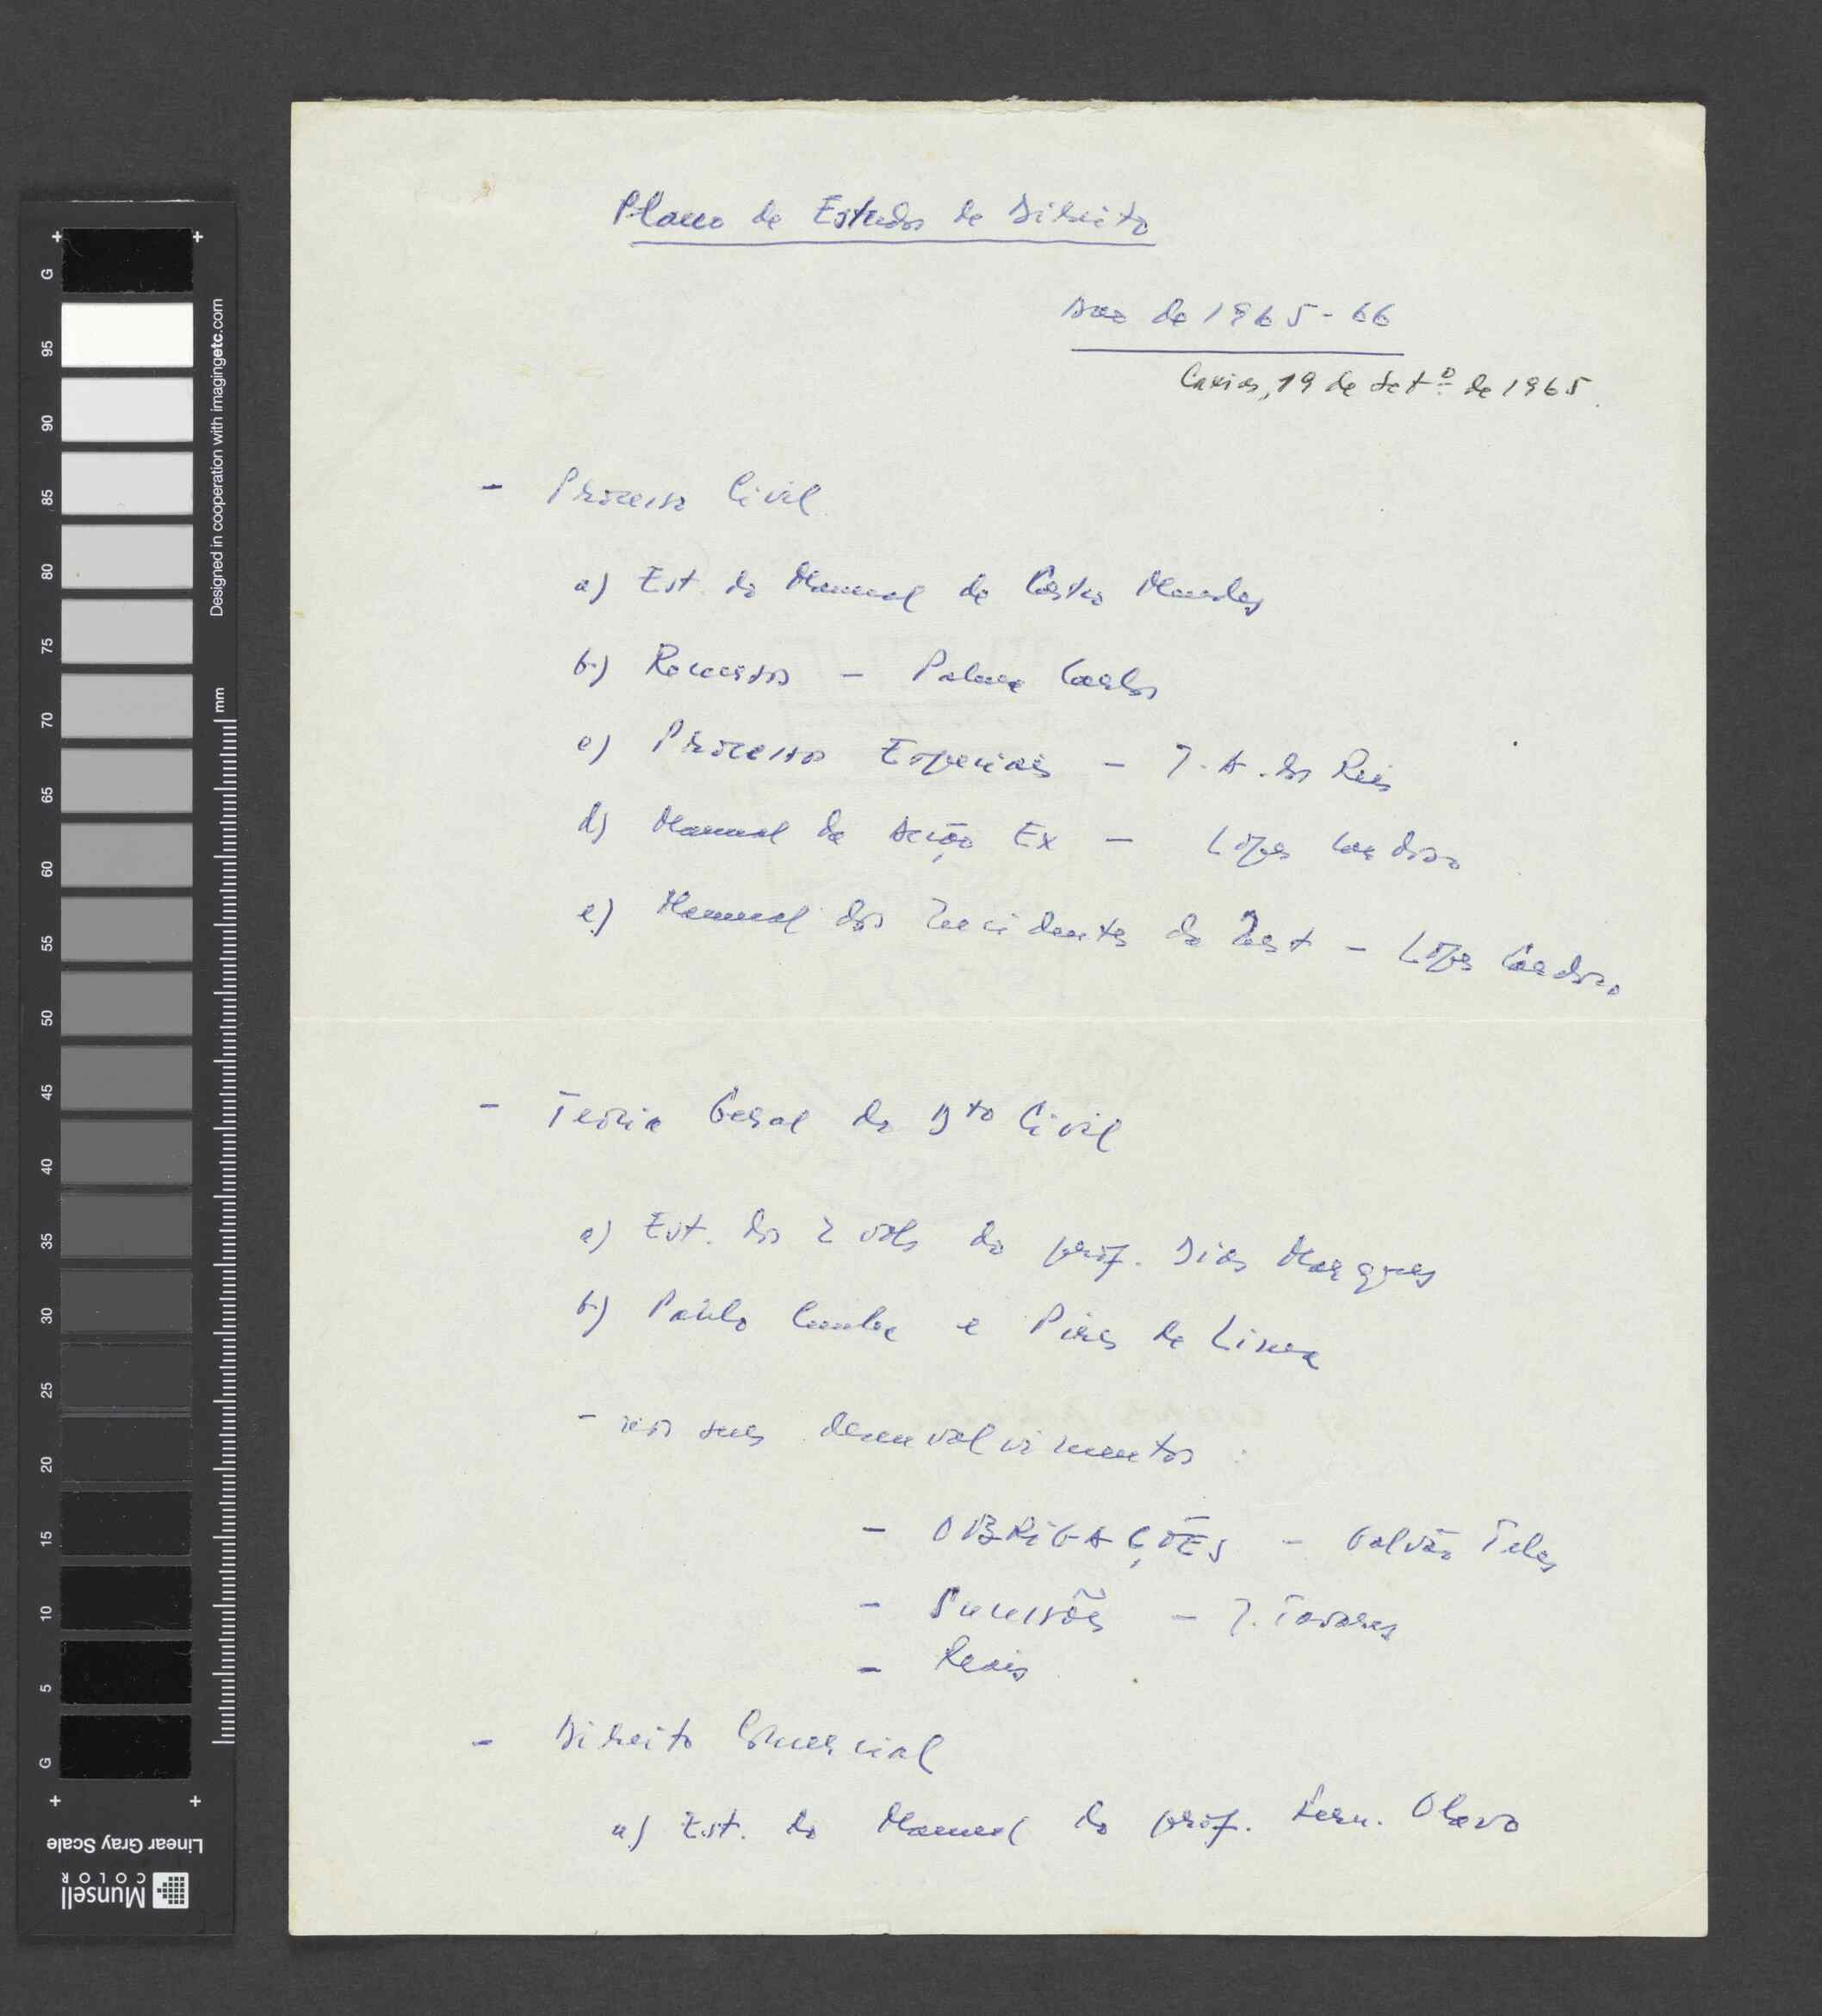 Plano de Estudos de Direito
Ano de 1965-66
Caxias, 19 de Setº de 1965.
- Processo Civil
a) Est. do Manual de Castro Mendes
b) Recursos - Palma Carlos
c) Processos Especiais - J. A. dos Reis
d) Manual da Acção Ex - Lopes Cardoso
e) Manual dos Incidentes da Inst - Lopes Cardoso
- Teoria Geral do Dto Civil
a) Est. dos 2 vols do prof. Dias Marques
b) Paulo Cunha e Pires de Lima
- nos seus desenvolvimentos:
- OBRIGAÇÕES - Galvão Teles
- Sucessões - J. Tavares
- Reais
- Direito Comercial
a) Est. do Manual do prof. Fern. Olavo
G
95
90
85
80
75
70
65
60
55
50
45
40
35
30
25
20
15
10
5
G
mm
Designed in cooperation with imagingetc.com
Linear Gray Scale
Munsell
COLOR